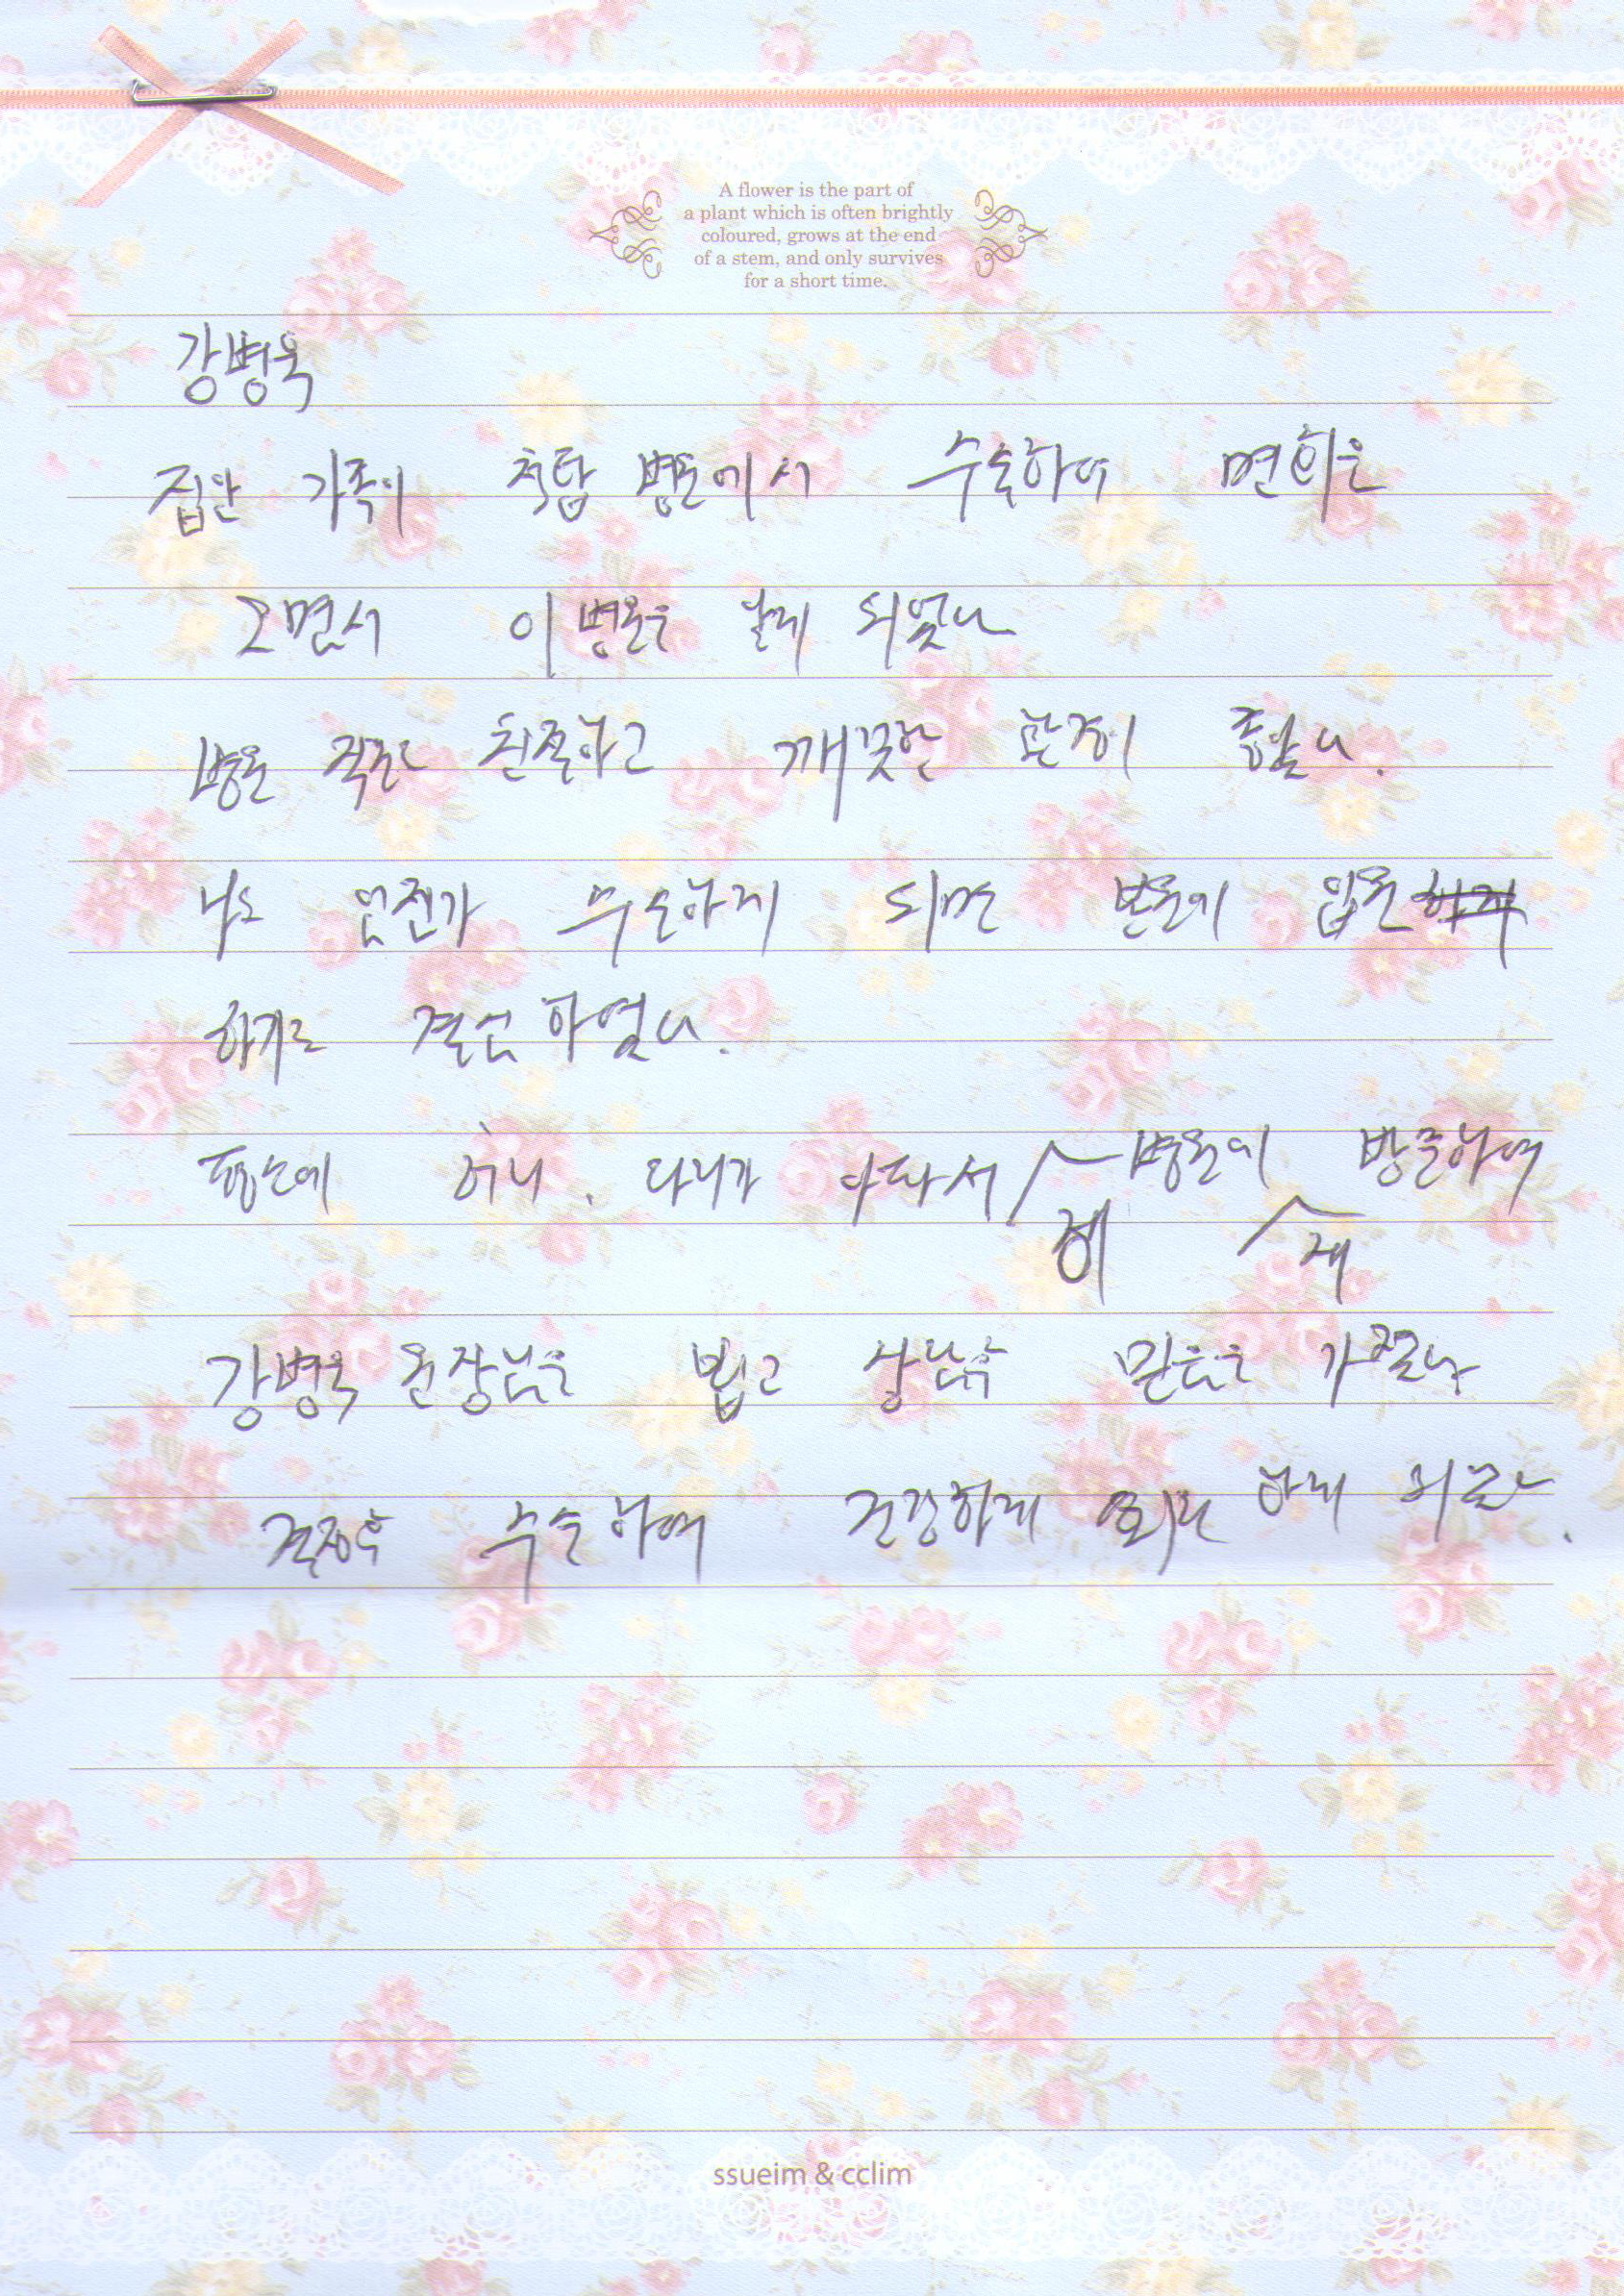 A flower is the part of
a plant which is often brightly
coloured, grows at the end
of a stem, and only survives
for a short time.
강병욱
집안 가족이 척탑 병원에서 수술하여 면회을
오면서 이 병원을 알게 되었다
병원 직원도 친절하고 깨끗한 환경이 좋았다.
나도 언젠가 수술하게 되면 본원에 입원
하기로 결심 하였다.
평소에 허리, 다리가 아파서 병원에 방문하여
강병욱 원장님을 뵙고 상담후 믿음을 가졌다
결정후 수술하여 건강하게 회복 하게 되었다.
ssueim & cclim